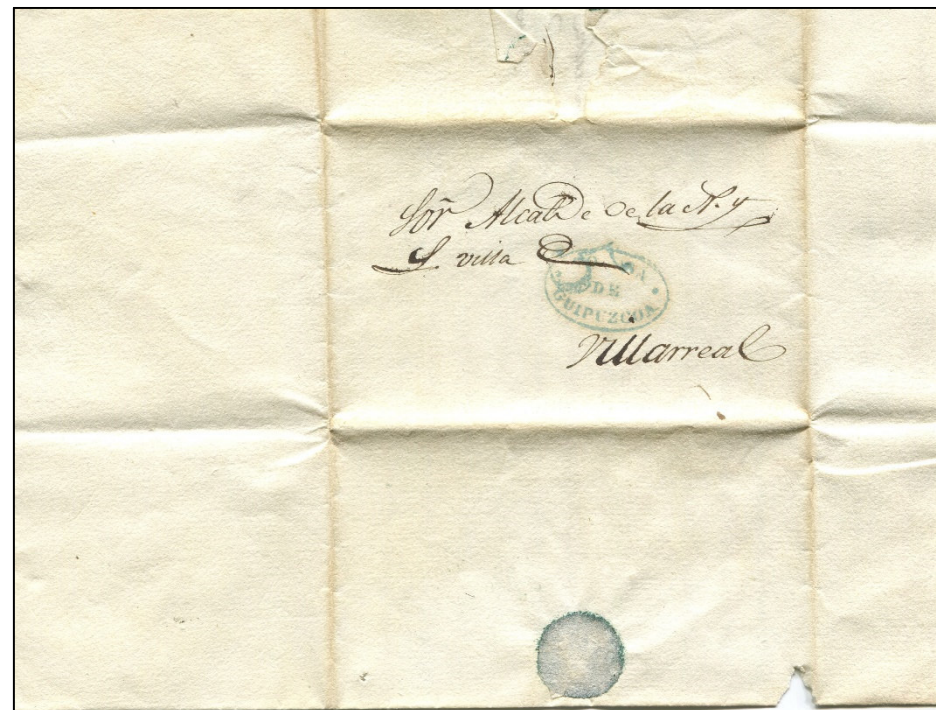 Sor. Alcalde de la N. y
L villa de
DE
GUIPUZCOA
Villarreal